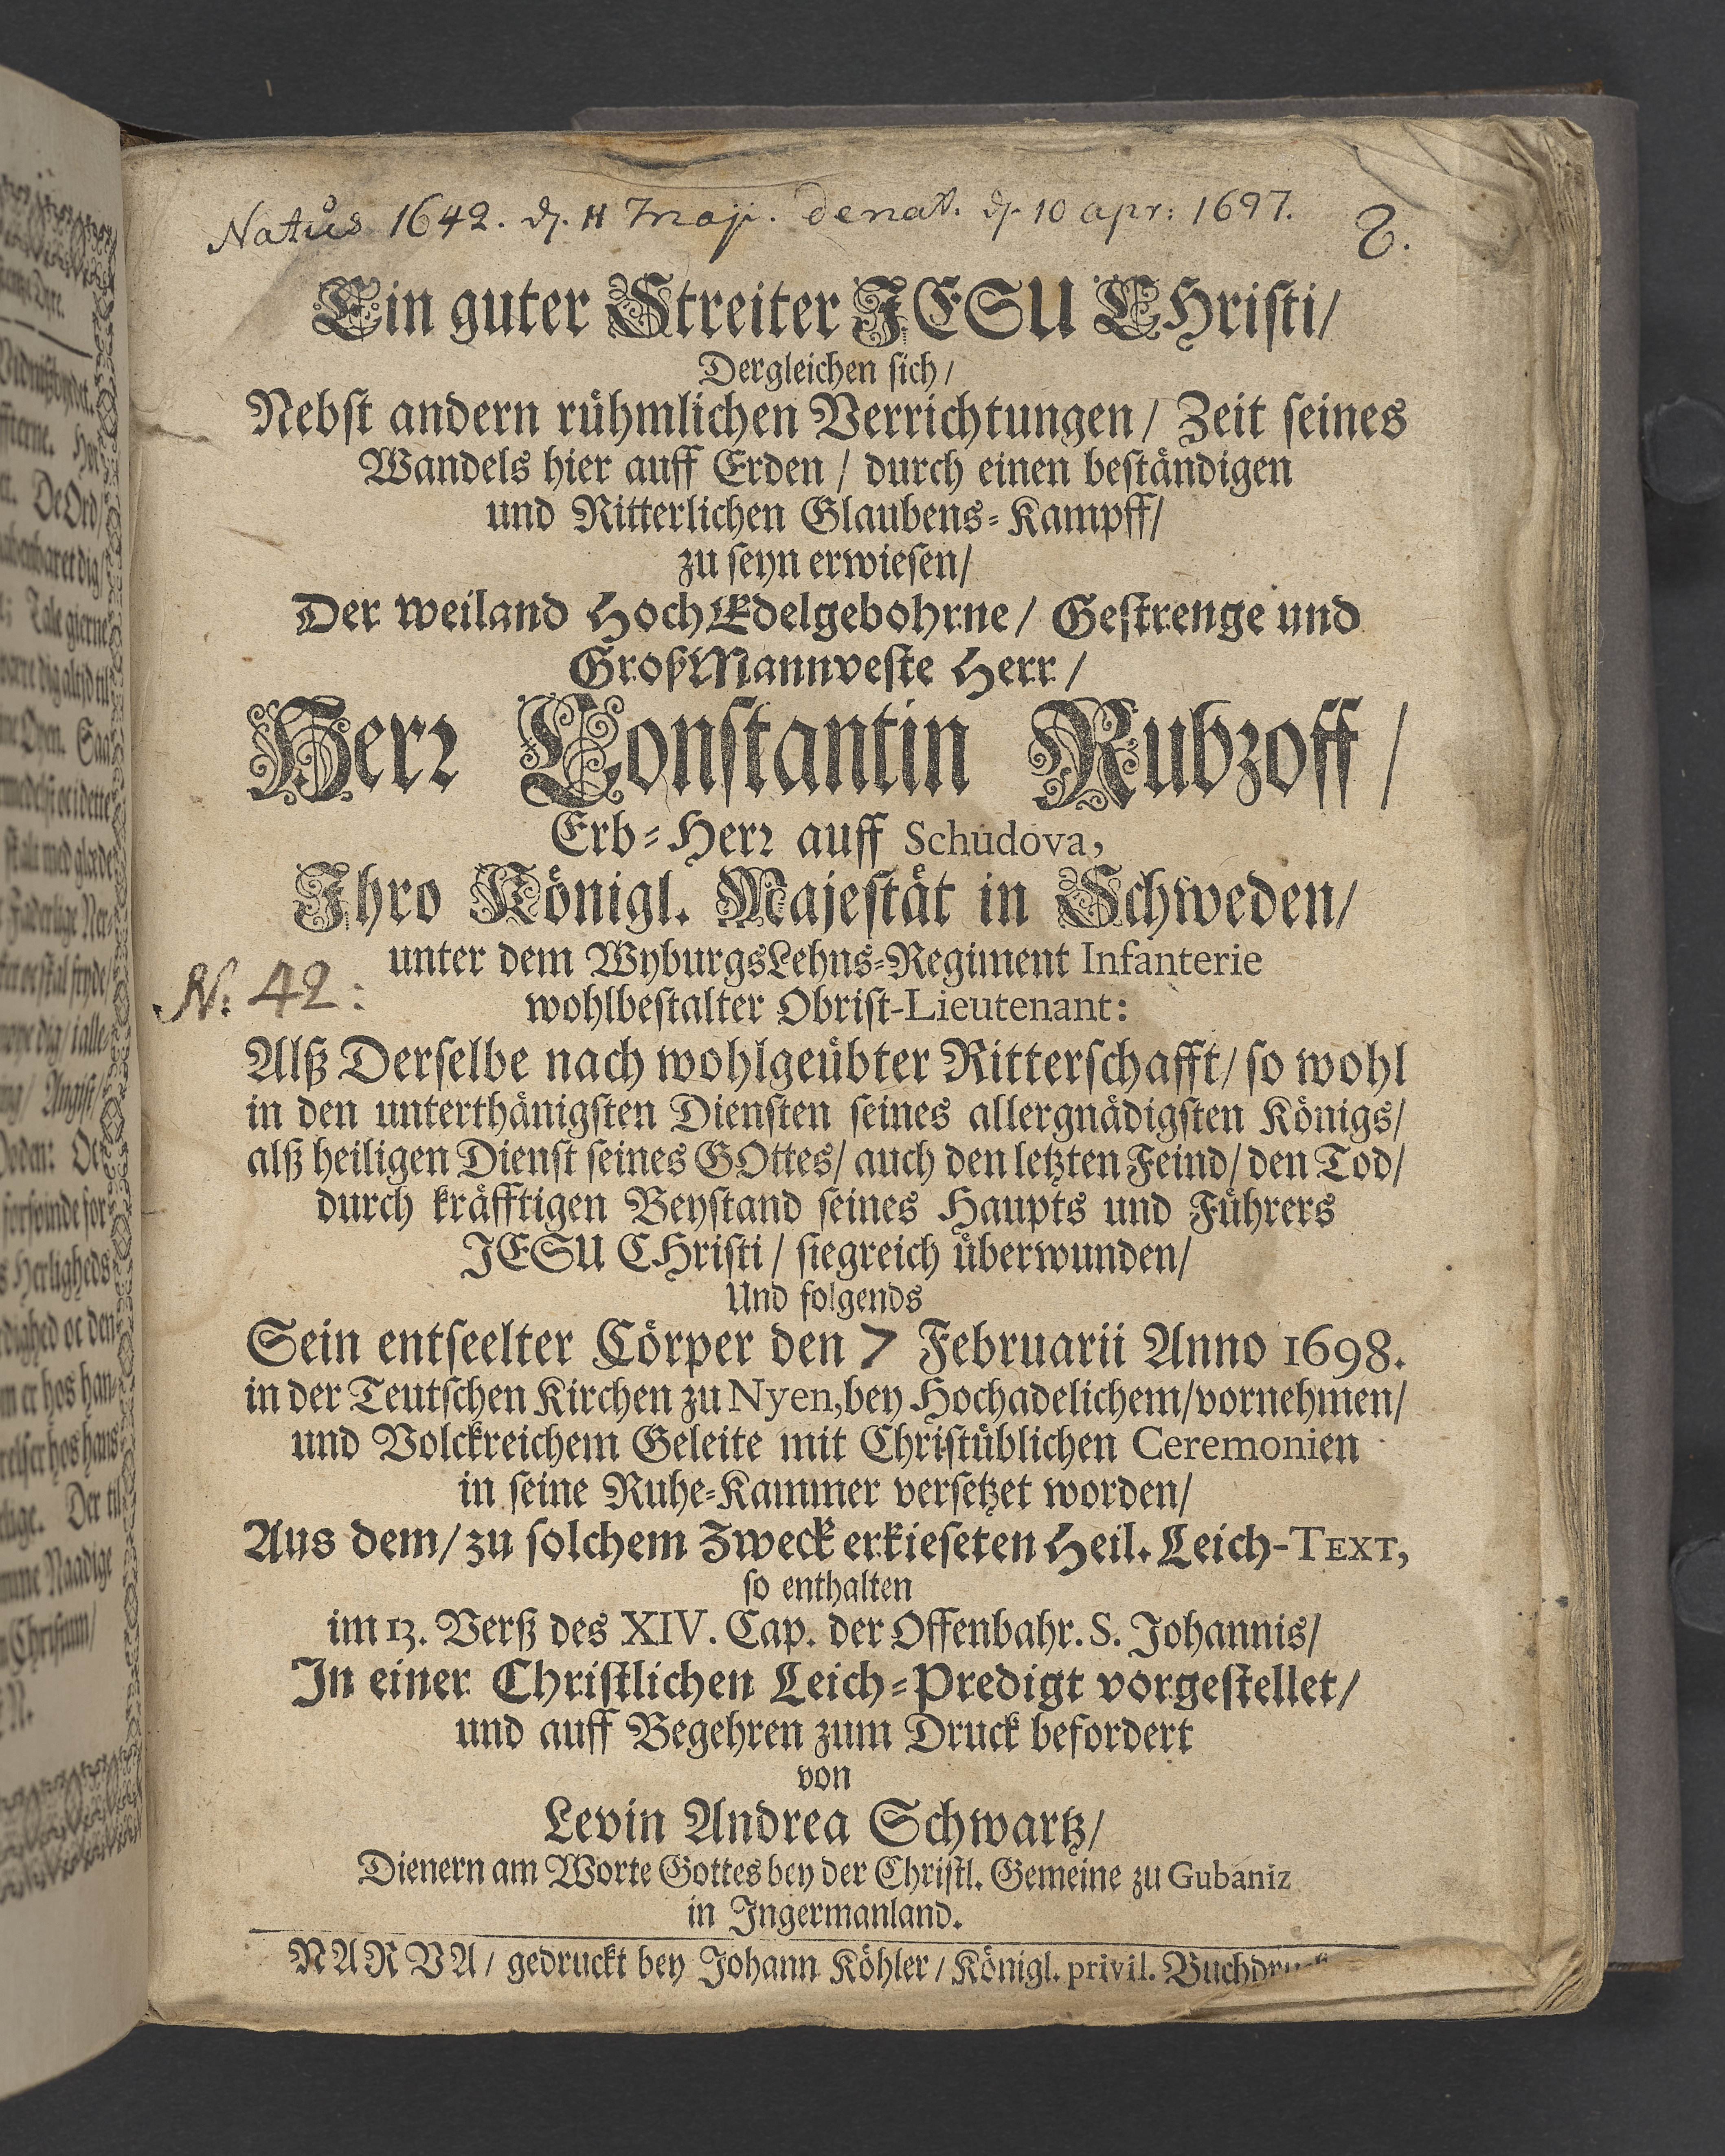 Natus 1642. d. 11 Maji. denat. d. 10 apr: 1697.
8.
Ein guter Streiter JESU CHristi/
Dergleichen sich/
Nebst andern rühmlichen Verrichtungen/ Zeit seines
Wandels hier auff Erden / durch einen beständigen
und Ritterlichen Glaubens-Kampff/
zu seyn erwiesen/
Der weiland HochEdelgebohrne/ Gestrenge und
GroßMannveste Herr /
Herr Constantin Rubzoff /
Erb-Herr auff Schudova,
Ihro Königl. Majestät in Schweden/
unter dem WyburgsLehns-Regiment Infanterie
N. 42:
wohlbestalter Obrist-Lieutenant:
Alß Derselbe nach wohlgeübter Ritterschafft/ so wohl
in den unterthänigsten Diensten seines allergnädigsten Königs/
alß heiligen Dienst seines GOttes/ auch den letzten Feind/ den Tod/
durch kräfftigen Beystand seines Haupts und Führers
JESU CHristi / siegreich überwunden/
Und folgends
Sein entseelter Cörper den 7 Februarii Anno 1698.
in der Teutschen Kirchen zu Nyen, bey Hochadelichem/vornehmen/
und Volckreichem Geleite mit Christüblichen Ceremonien
in seine Ruhe-Kammer versetzet worden/
Aus dem/ zu solchem Zweck erkieseten Heil. Leich-TEXT,
so enthalten
im 13. Verß des XIV. Cap. der Offenbahr. S. Johannis/
In einer Christlichen Leich-Predigt vorgestellet/
und auff Begehren zum Druck befordert
von
Levin Andrea Schwartz/
Dienern am Worte Gottes bey der Christl. Gemeine zu Gubaniz
in Ingermanland.
NARVA/ gedruckt bey Johann Köhler/ Königl. privil.